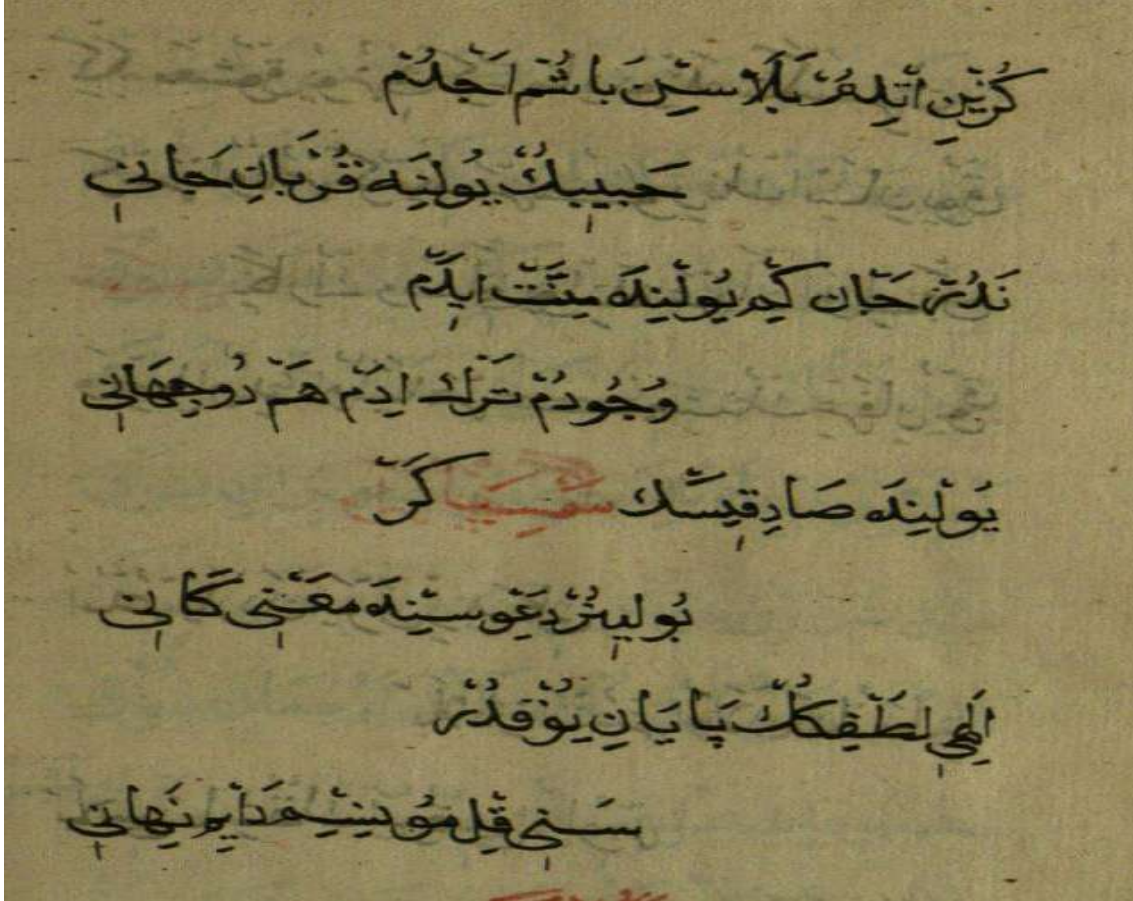 كُزِينِ اَتْلِدُمْ بَلَا سِنَ بَاشُمْ اَچْدُمْ
حَبِيبِكْ يُولِينَه قُرْبَانِ جَانِي
نَدُرْ جَان كِيم يُولِينْدَه مِنَّتْ ايدَم
وُجُودُمْ تَرْك اِدَمْ هَمْ دُوجِهَانِي
يُولِينْدَه صَادِقِيسَك كَرْ
بُولِينُرْ دَعْوِسِنْدَه مَعْنِي كَانِي
اِلٰهِي لُطْفِكُكْ پَايَانِ يُوقْدُرْ
سَنِي قِل مُونِسِم دَايِم نِهَانِي